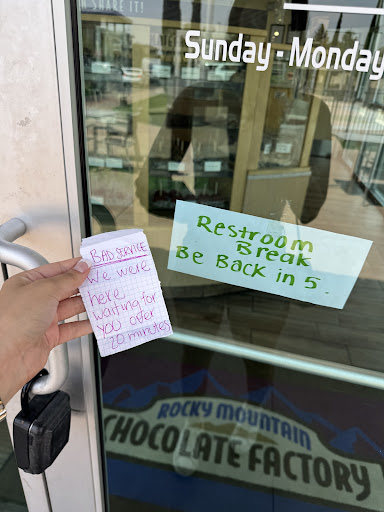 SHARE IT!
Sunday - Monday
Restroom
Break
Be Back in 5.
BAD SERVICE
We were
here
waiting for
you over
20 minutes
ROCKY MOUNTAIN
CHOCOLATE FACTORY